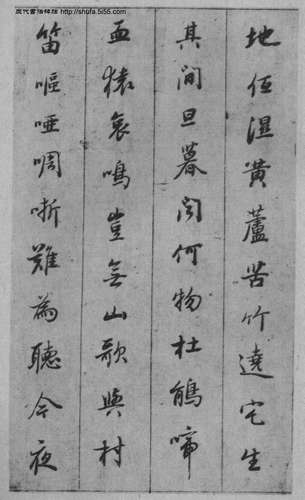 历代书法碑帖 http://shufa.5i55.com
地低濕黃蘆苦竹遶宅生
其間旦暮聞何物杜鵑啼
血猿哀鳴豈無山歌與村
笛嘔啞啁哳難為聽今夜